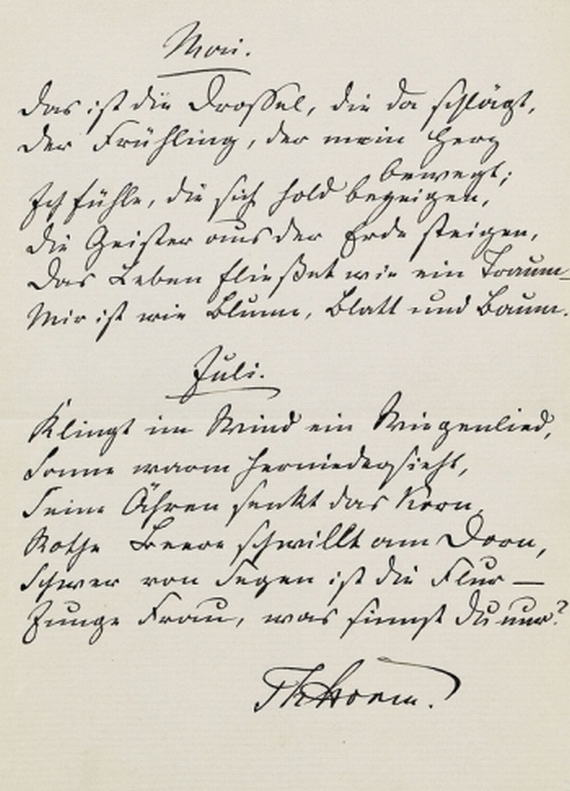 Mai.
Das ist die Drossel, die da schlägt,
Der Frühling, der mein Herz
bewegt;
Ich fühle, die sich hold bezeigen,
Die Geister aus der Erde steigen,
Das Leben fließet wie ein Traum –
Mir ist wie Blume, Blatt und Baum.
Juli.
Klingt im Wind ein Wiegenlied,
Sonne warm herniedersieht,
Seine Ähren senkt das Korn,
Rothe Beere schwillt am Dorn,
Schwer von Segen ist die Flur —
Junge Frau, was sinnst du nur?
ThStorm.